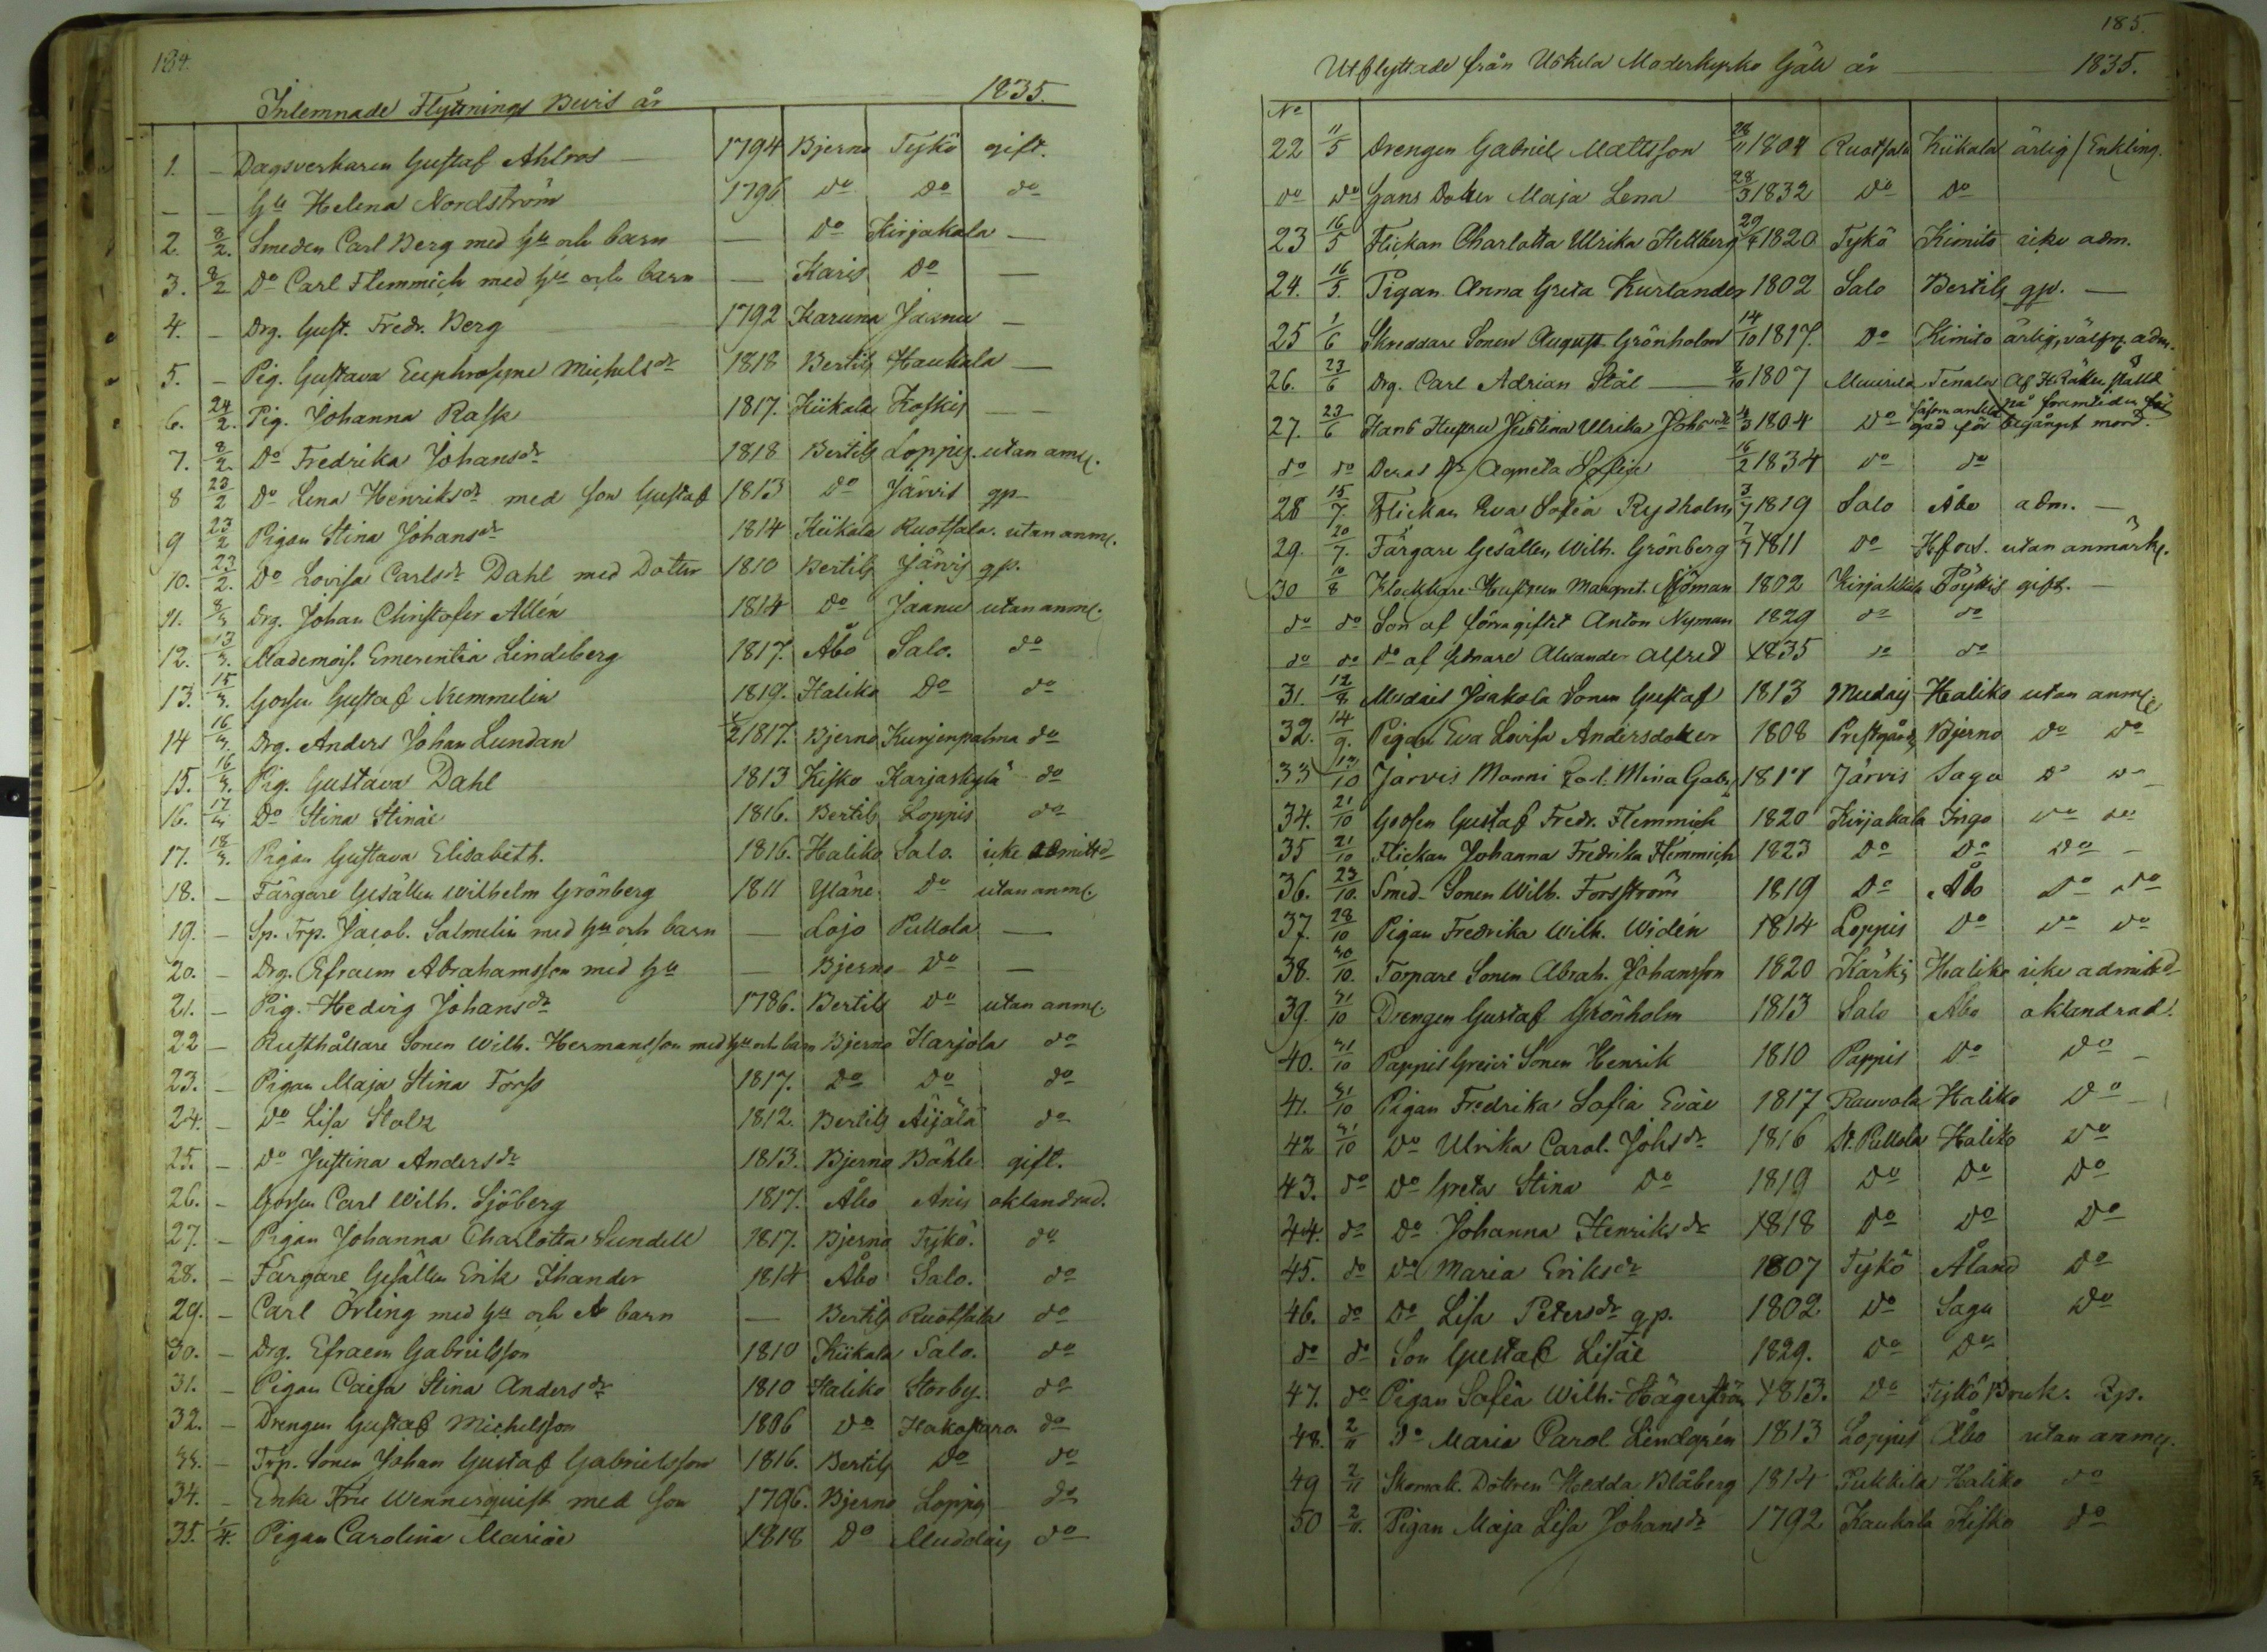 184.
Inlemnade Flyttnings Bevis år 1835.
1. – Dagsverkaren Gustaf Ahlroos – 1794 Bjerno Tykö gift.
– – Hu Helena Nordström 1796 do do do
2. 8/2. Smeden Carl Berg med Hu och barn – do Kirjakala –
3. 8/2 do Carl Flemmich med Hu och barn – Karis do –
4. – Drg. Gust. Fredr. Berg 1792 Karuna Jaanu –
5. – Pig. Gustava Euphrosyne Michelsdr 1818 Bertils Haukala –
6. 24/2. Pig. Johanna Rask 1817. Kiikala Koskis – –
7. 8/2. Do Fredrika Johansdr 1818 Bertils Loppis utan anm.
8 23/2 Do Lena Henriksdr med son Gustaf 1813 Do Järvis gp
9 23/2 Pigan Stina Johansdr 1814 Kiikala Ruotsala. utan anm.
10. 23/2. Do Lovisa Carlsdr Dahl med Dotter 1810 Bertils Järvis gp.
11. 8/3 Drg. Johan Christofer Allén 1814 Do Jaanu utan anm.
12. 13/3. Mademois. Emerentia Lindeberg 1817. Åbo Salo. do
13. 15/3. Gossen Gustaf Nummelin 1819. Haliko Do do
14 16/3. Drg. Anders Johan Lundan 1817. Bjerno Kurjenpahna do
15. 16/3. Pig. Gustava Dahl 1813 Kisko Karjaskylä do
16. 17/3 Do Stina Stinae 1816. Bertils Loppis do
17. 18/3. Pigan Gustava Elisabeth. 1816. Haliko Salo. icke admitt
18. – Färgare Gesällen Wilhelm Grönberg 1811 Yläne Do utan anm.
19. – Sp. Trp. Jacob. Salmelin med Hu och barn – Lojo Pullola –
20. – Drg. Efraim Abrahamsson med Hu – Bjerno Do –
21. – Pig. Hedvig Johansdr 1786. Bertils Do utan anm.
22 – Rusthållare Sonen Wilh. Hermansson med Hu och barn Bjerno Harjola do
23. – Pigan Maja Stina Forss 1817. Do Do do
24. – Do Lisa Stolz 1812. Bertils Äijälä do
25. – Do Justina Andersdr 1813. Bjerno Böhle gift.
26. – Gossen Carl Wilh. Sjöberg 1817. Åbo Anis oklandrad.
27. – Pigan Johanna Charlotta Sundell 1817. Bjerno Tykö. do
28. – Färgare Gesällen Erik Ihander 1814 Åbo Salo. do
29. – Carl Örling med Hu och barn – Bertils Ruotsala do
30. – Drg. Efraem Gabrielsson 1810 Kiikala Salo. do
31. – Pigan Caisa Stina Andersdr 1810 Haliko Storby. do
32. – Drengen Gustaf Michelsson 1806 Do Hakostaro do
33. – Trp. Sonen Johan Gustaf Gabrielsson 1816. Bertils Do do
34. – Enke Fru Wennerquist med son 1796. Bjerno Loppis do
35. 1/4. Pigan Carolina Mariae 1818 Do Muddais do
185.
Utflyttade från Uskela Moderkyrko Gäll år 1835.
No
22 11/5 Drengen Gabriel Mattsson 28/11 1804 Ruotsala Kiikala ärlig / Enkling.
do do Hans Dotter Maja Lena 28/3 1832 Do Do
23 16/5 Flickan Charlotta Ulrika Hellberg 29/4 1820 Tykö Kimito icke adm.
24. 16/5. Pigan Anna Greta Kurlander 1802 Salo Bertils gp. –
25 1/6 Skreddare Sonen August Grönholm 14/10 1817. Do Kimito ärlig, välfr. adm.
26. 23/6 Drg. Carl Adrian Stål – 1807 Muurila Tenala Af H. Rätten ställd
27. 23/6 Hans Hustru Justina Ulrika 4/3 1804 Do såsom anklagad på framtiden för begånget mord.
do do Deras Dr Agneta Sofia 16/2 1834 do do
28 15/7. Flickan Eva Sofia Rydholm 3/7 1819 Salo Åbo adm. –
29. 20/7. Färgare Gesällen Wilh. Grönberg 1811 Do Hfors. utan anmärk.
30 10/8 Klockare Hustrun Margret. Nyman 1802 Kirjakkala Pöyttis gift. –
do do Son af förra giftet Anton Nyman 1829 do do
do do do af sednare Alexander Alfred 1835 do do
31. 12/8 Mudais Jaakola Sonen Gustaf 1813 Mudais Haliko utan anm.
32. 14/9. Pigan Eva Lovisa Andersdotter 1808 Prestgård Bjerno Do Do
33 13/10 Järvis Manni Mina Gabr. 1817 Järvis Sagu Do Do
34. 21/10 Gossen Gustaf Fredr. Flemmich 1820 Kirjakala Ingo Do Do
35 21/10 Flickan Johanna Fredrika Flemmich 1823 Do Do Do –
36. 23/10. Smed-Sonen Wilh. Forsström 1819 Do Åbo Do Do
37. 28/10 Pigan Fredrika Wilh. Widén 1814 Loppis Do Do Do
38. 30/10. Torpare Sonen Abrah. Johansson 1820 Kärkis Haliko icke admitd
39. 31/10 Drengen Gustaf Grönholm 1813 Salo Åbo oklandrad.
40. 31/10 Pappis Greivi Sonen Henrik 1810 Pappis Do Do –
41. 31/10 Pigan Fredrika Sofia Evae 1817 Rauvola Haliko Do –
42 31/10 Do Ulrika Carol. Johsdr 1816 St. Pullola Haliko Do
43. do Do Greta Stina Do 1819 Do Do Do
44. do Do Johanna Henriksdr 1818 Do Do Do
45. do Do Maria Eriksdr 1807 Tykö Åland Do
46. do Do Lisa Petersdr gp. 1802 Do Sagu Do
do do Son Gustaf Lisae 1829. Do Do
47. do Pigan Sofia Wilh. Hägerström 1813. Do Tykö Bruk.
48. 2/11 Do Maria Carol Lindgrén 1813 Loppis Åbo utan anm.
49 2/11 Skomak. Dottren Hedda Blåberg 1814 Pukkila Haliko do
50 2/11. Pigan Maja Lisa Johansdr 1792 Kaukala Kisko do